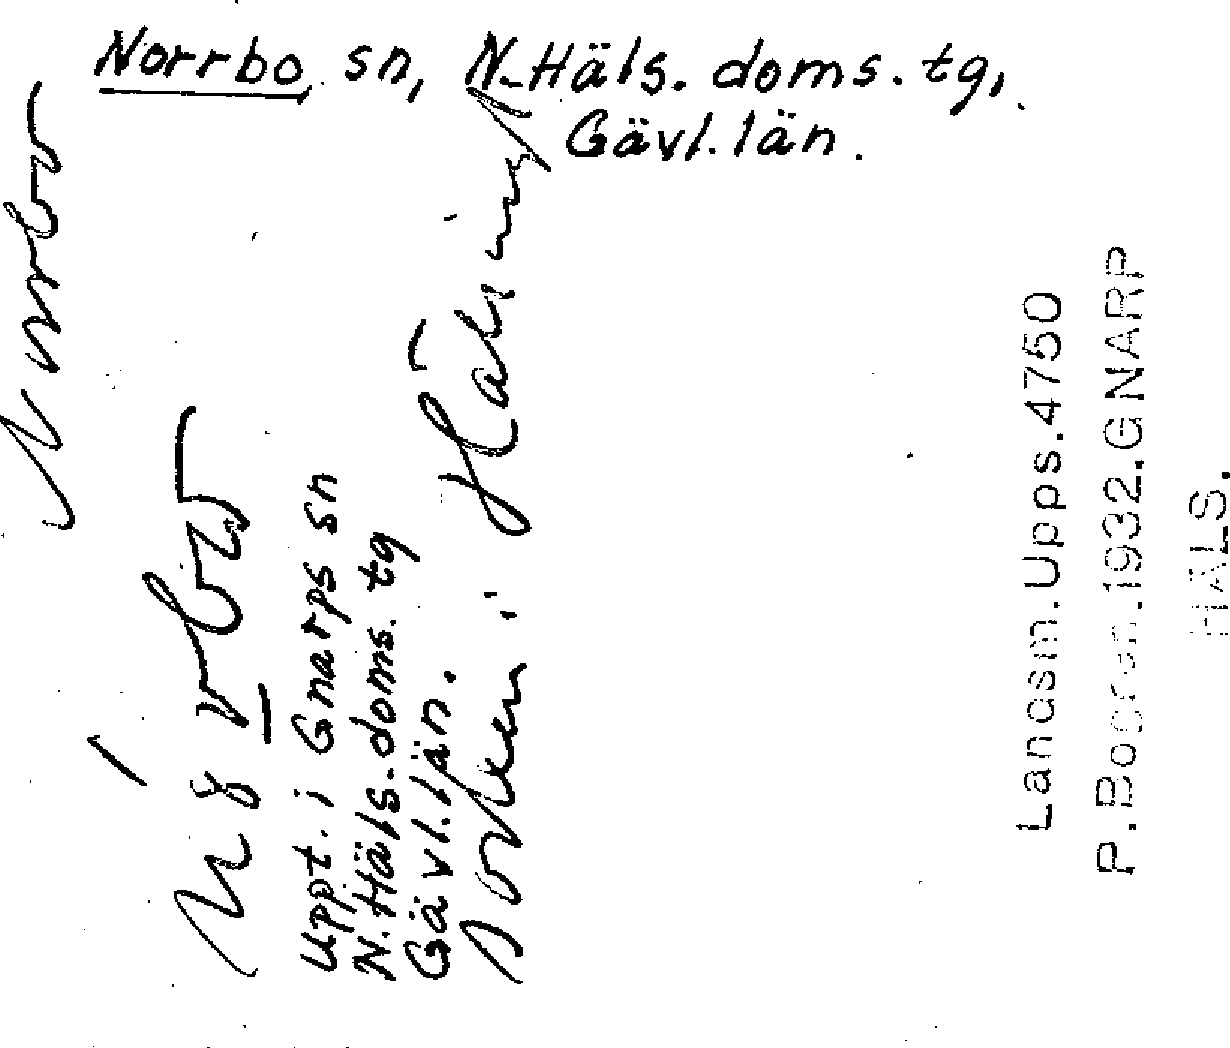 Norrbo sn, N. Häls. doms. tg,
Gävl. län.
Norrbo
uppt. i Gnarps sn
N. Häls. doms. tg
Gävl. län.
Socken i Hälsingl
Landsm. Upps. 4750
P. Boman. 1932. GNARP
HÄLS.